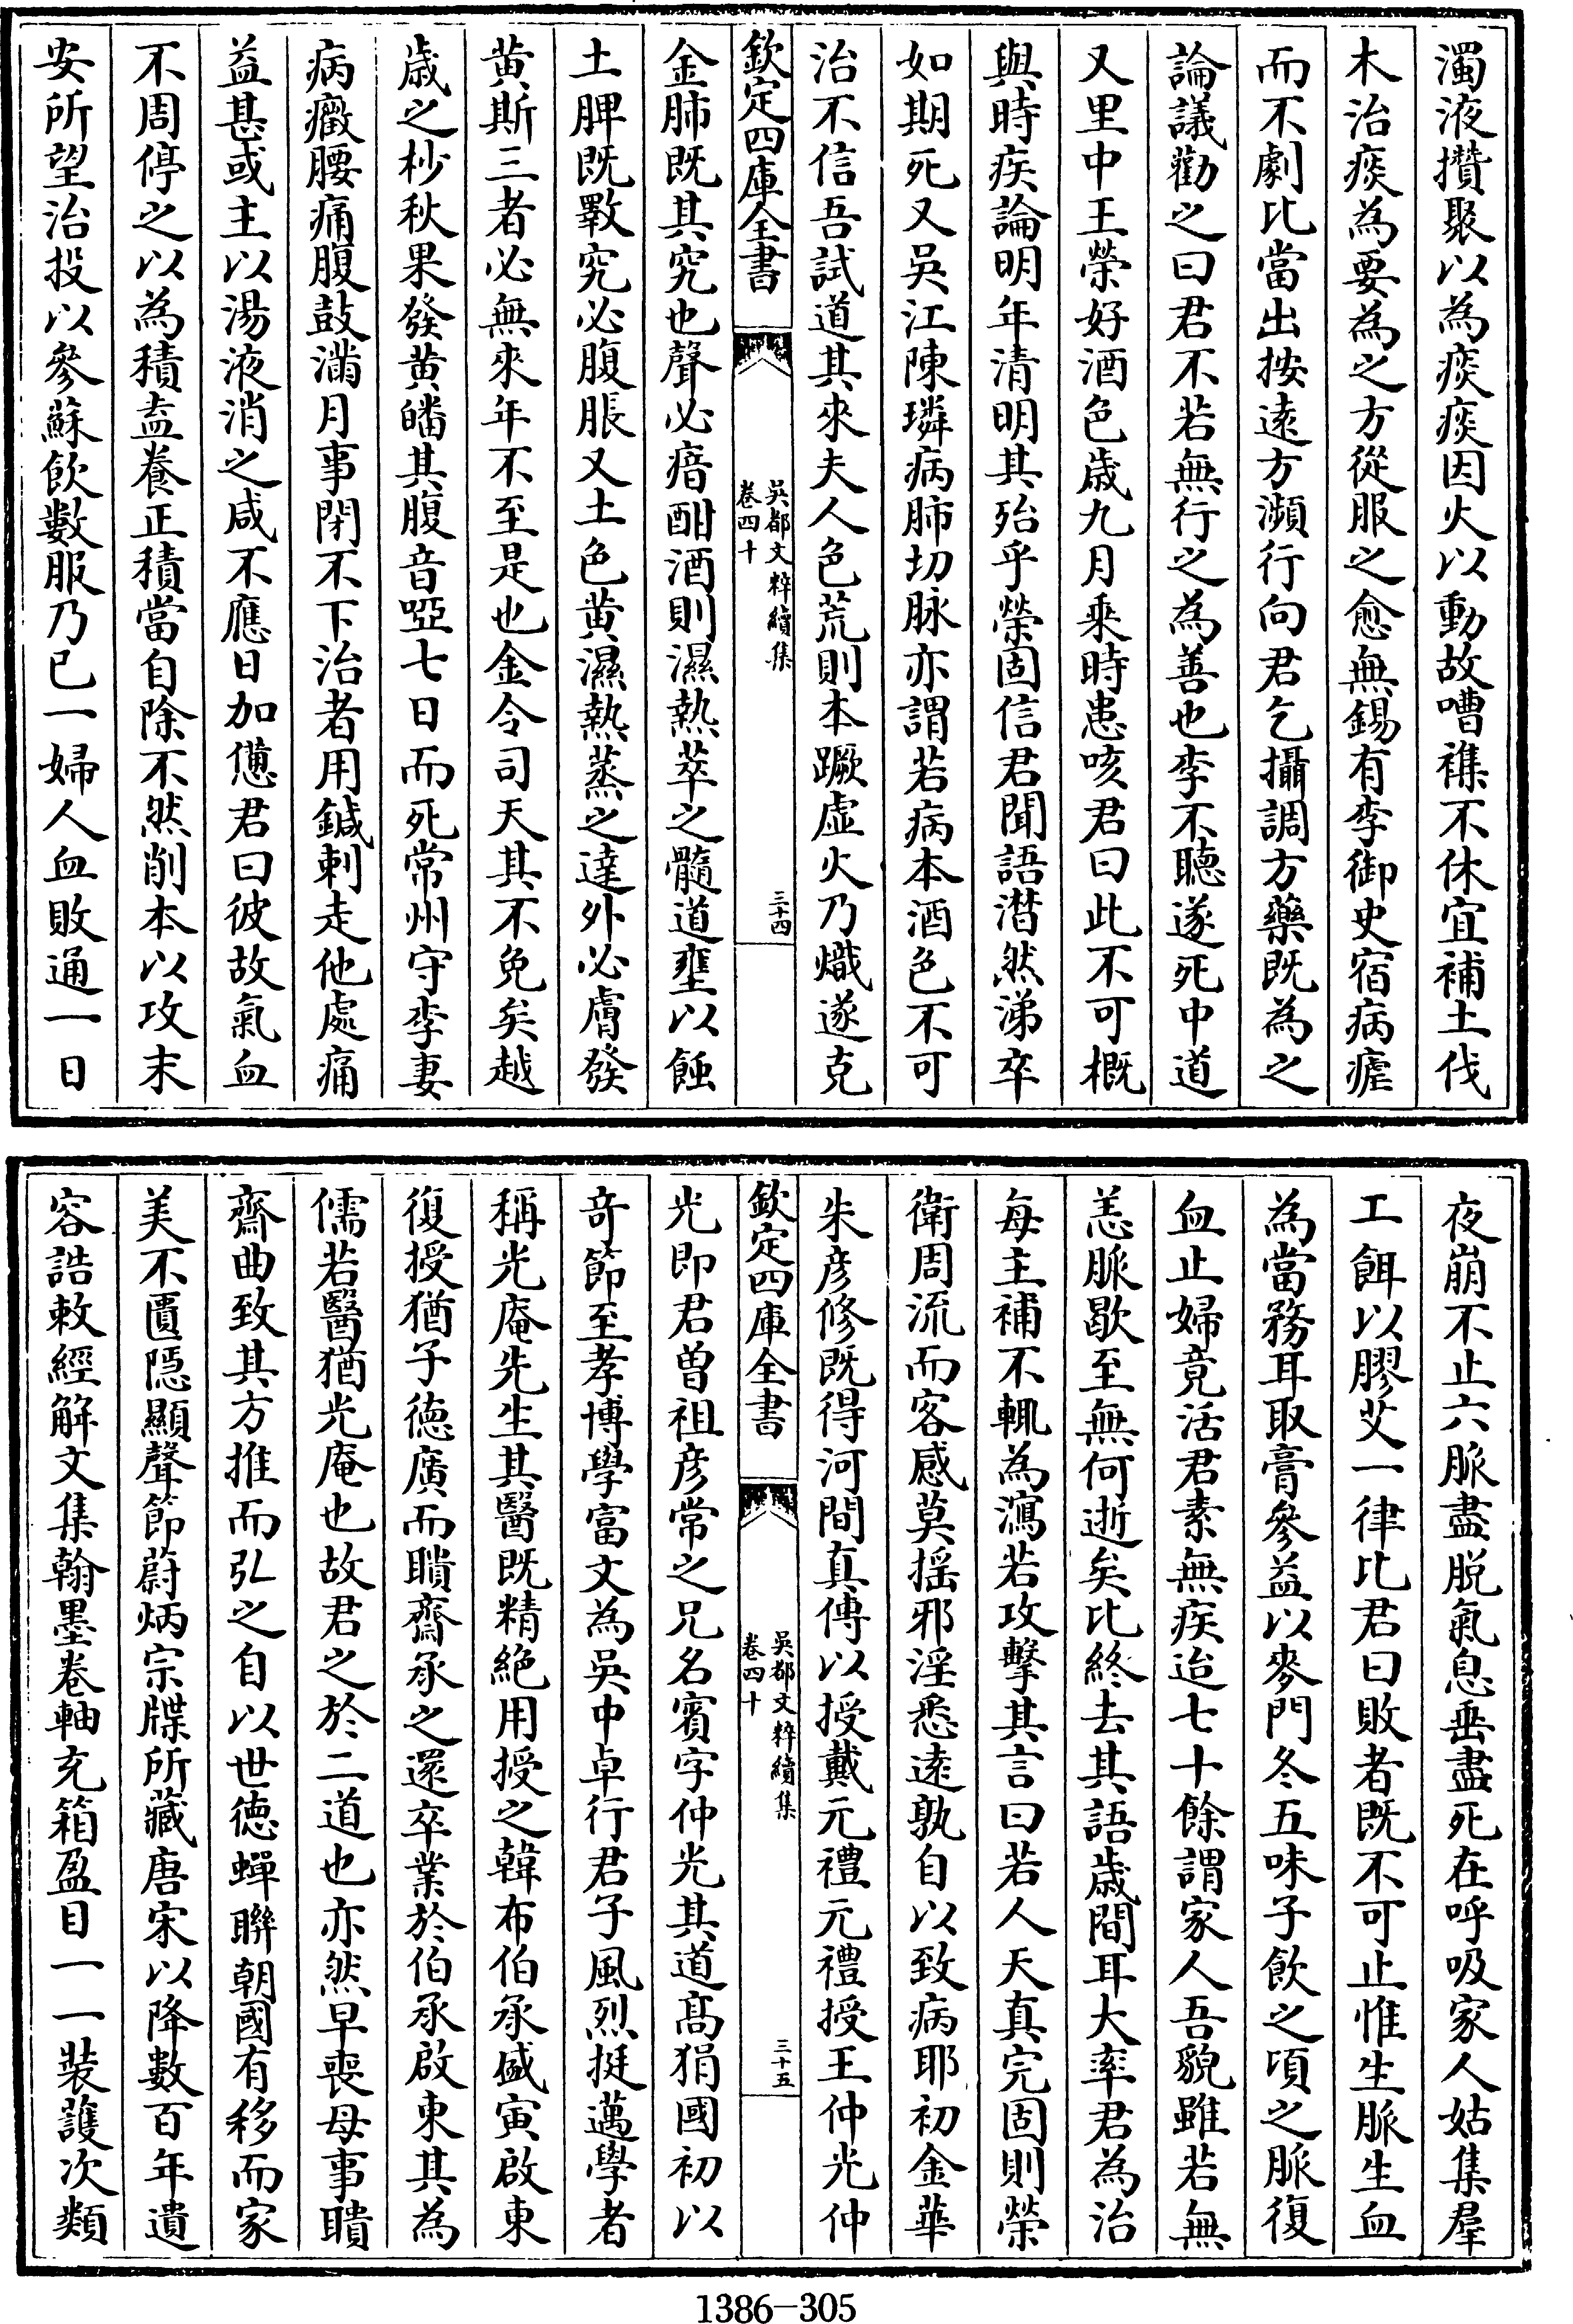 濁液攢聚以為痰痰因火以動故嘈襍不休宜補土伐
木治痰為要為之方從服之愈無錫有李御史宿病瘧
而不劇比當出按逺方瀕行向君乞攝調方藥既為之
論議勸之曰君不若無行之為善也李不聽遂死中道
又里中王榮好酒色歳九月乘時患咳君曰此不可概
與時疾論明年清明其殆乎榮固信君聞語潸然涕卒
如期死又吳江陳璘病肺切脉亦謂若病本酒色不可
治不信吾試道其來夫人色荒則本蹶虚火乃熾遂克
欽定四庫全書
吳都文粹續集
卷四十
三十四
金肺既其究也聲必瘖酣酒則濕熱萃之髓道壅以蝕
土脾既斁究必腹脹又土色黄濕熱蒸之達外必膚發
黄斯三者必無來年不至是也金令司天其不免矣越
歳之杪秋果發黄皤其腹音啞七日而死常州守李妻
病癥腰痛腹鼓滿月事閉不下治者用鍼刺走他處痛
益甚或主以湯液消之咸不應日加憊君曰彼故氣血
不周停之以為積盍養正積當自除不然削本以攻末
安所望治投以參蘇飲數服乃已一婦人血敗通一日
夜崩不止六脈盡脱氣息垂盡死在呼吸家人姑集羣
工餌以膠艾一律比君曰敗者既不可止惟生脈生血
為當務耳取膏參益以麥門冬五味子飲之頃之脈復
血止婦竟活君素無疾迨七十餘謂家人吾貌雖若無
恙脈歇至無何逝矣比終去其語歳間耳大率君為治
每主補不輒為瀉若攻擊其言曰若人天真完固則榮
衛周流而客感莫揺邪淫悉逺孰自以致病耶初金華
朱彦修既得河間真傳以授戴元禮元禮授王仲光仲
欽定四庫全書
吳都文粹續集
卷四十
三十五
光即君曽祖彦常之兄名賓字仲光其道髙狷國初以
竒節至孝博學富文為吳中卓行君子風烈挺邁學者
稱光庵先生其醫既精絶用授之韓布伯承盛寅啟東
復授猶子徳廣而瞶齋承之還卒業於伯承啟東其為
儒若醫猶光庵也故君之於二道也亦然早喪母事瞶
齋曲致其方推而弘之自以世徳蟬聯朝國有移而家
美不匱隠顯聲節蔚炳宗牒所藏唐宋以降數百年遺
容誥敕經解文集翰墨卷軸充箱盈目一一裝護次類
1386—305